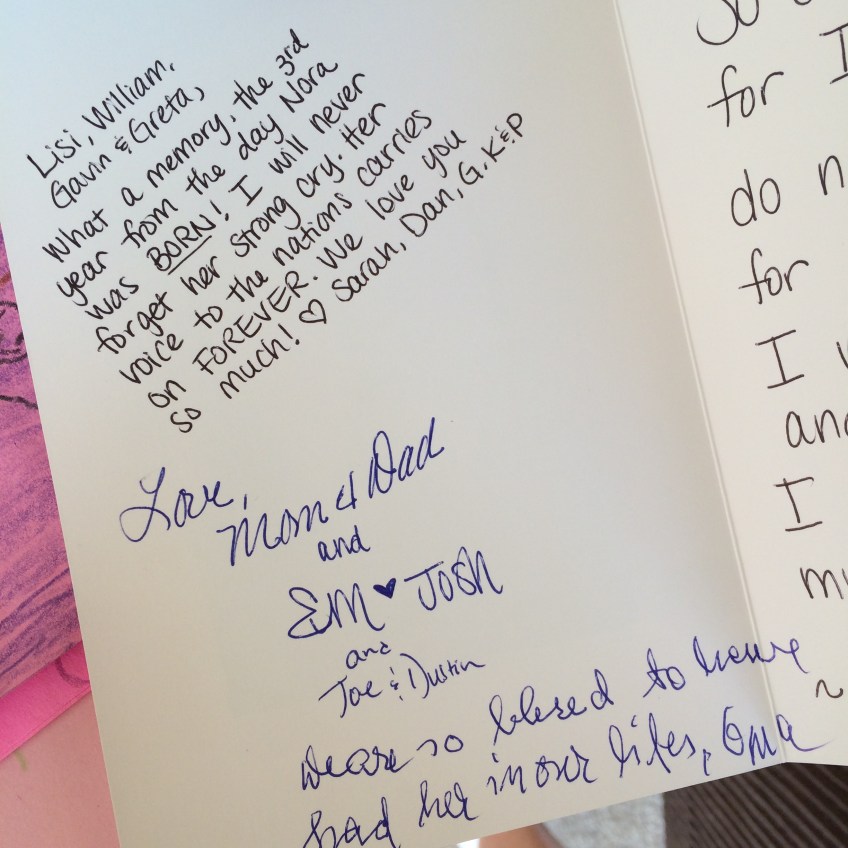 Lisi, William,
Gavin & Greta,
What a memory, the 3rd
year from the day Nora
was BORN! I will never
forget her strong cry. Her
voice to the nations carries
on FOREVER. We love you
so much! ♡ Sarah, Dan, G, K & P
Love,
Mom & Dad
and
Em ♥ Josh
and
Joe & Dustin
We are so blessed to have
had her in our lifes, Oma
for I
do n
for
I
and
I
~